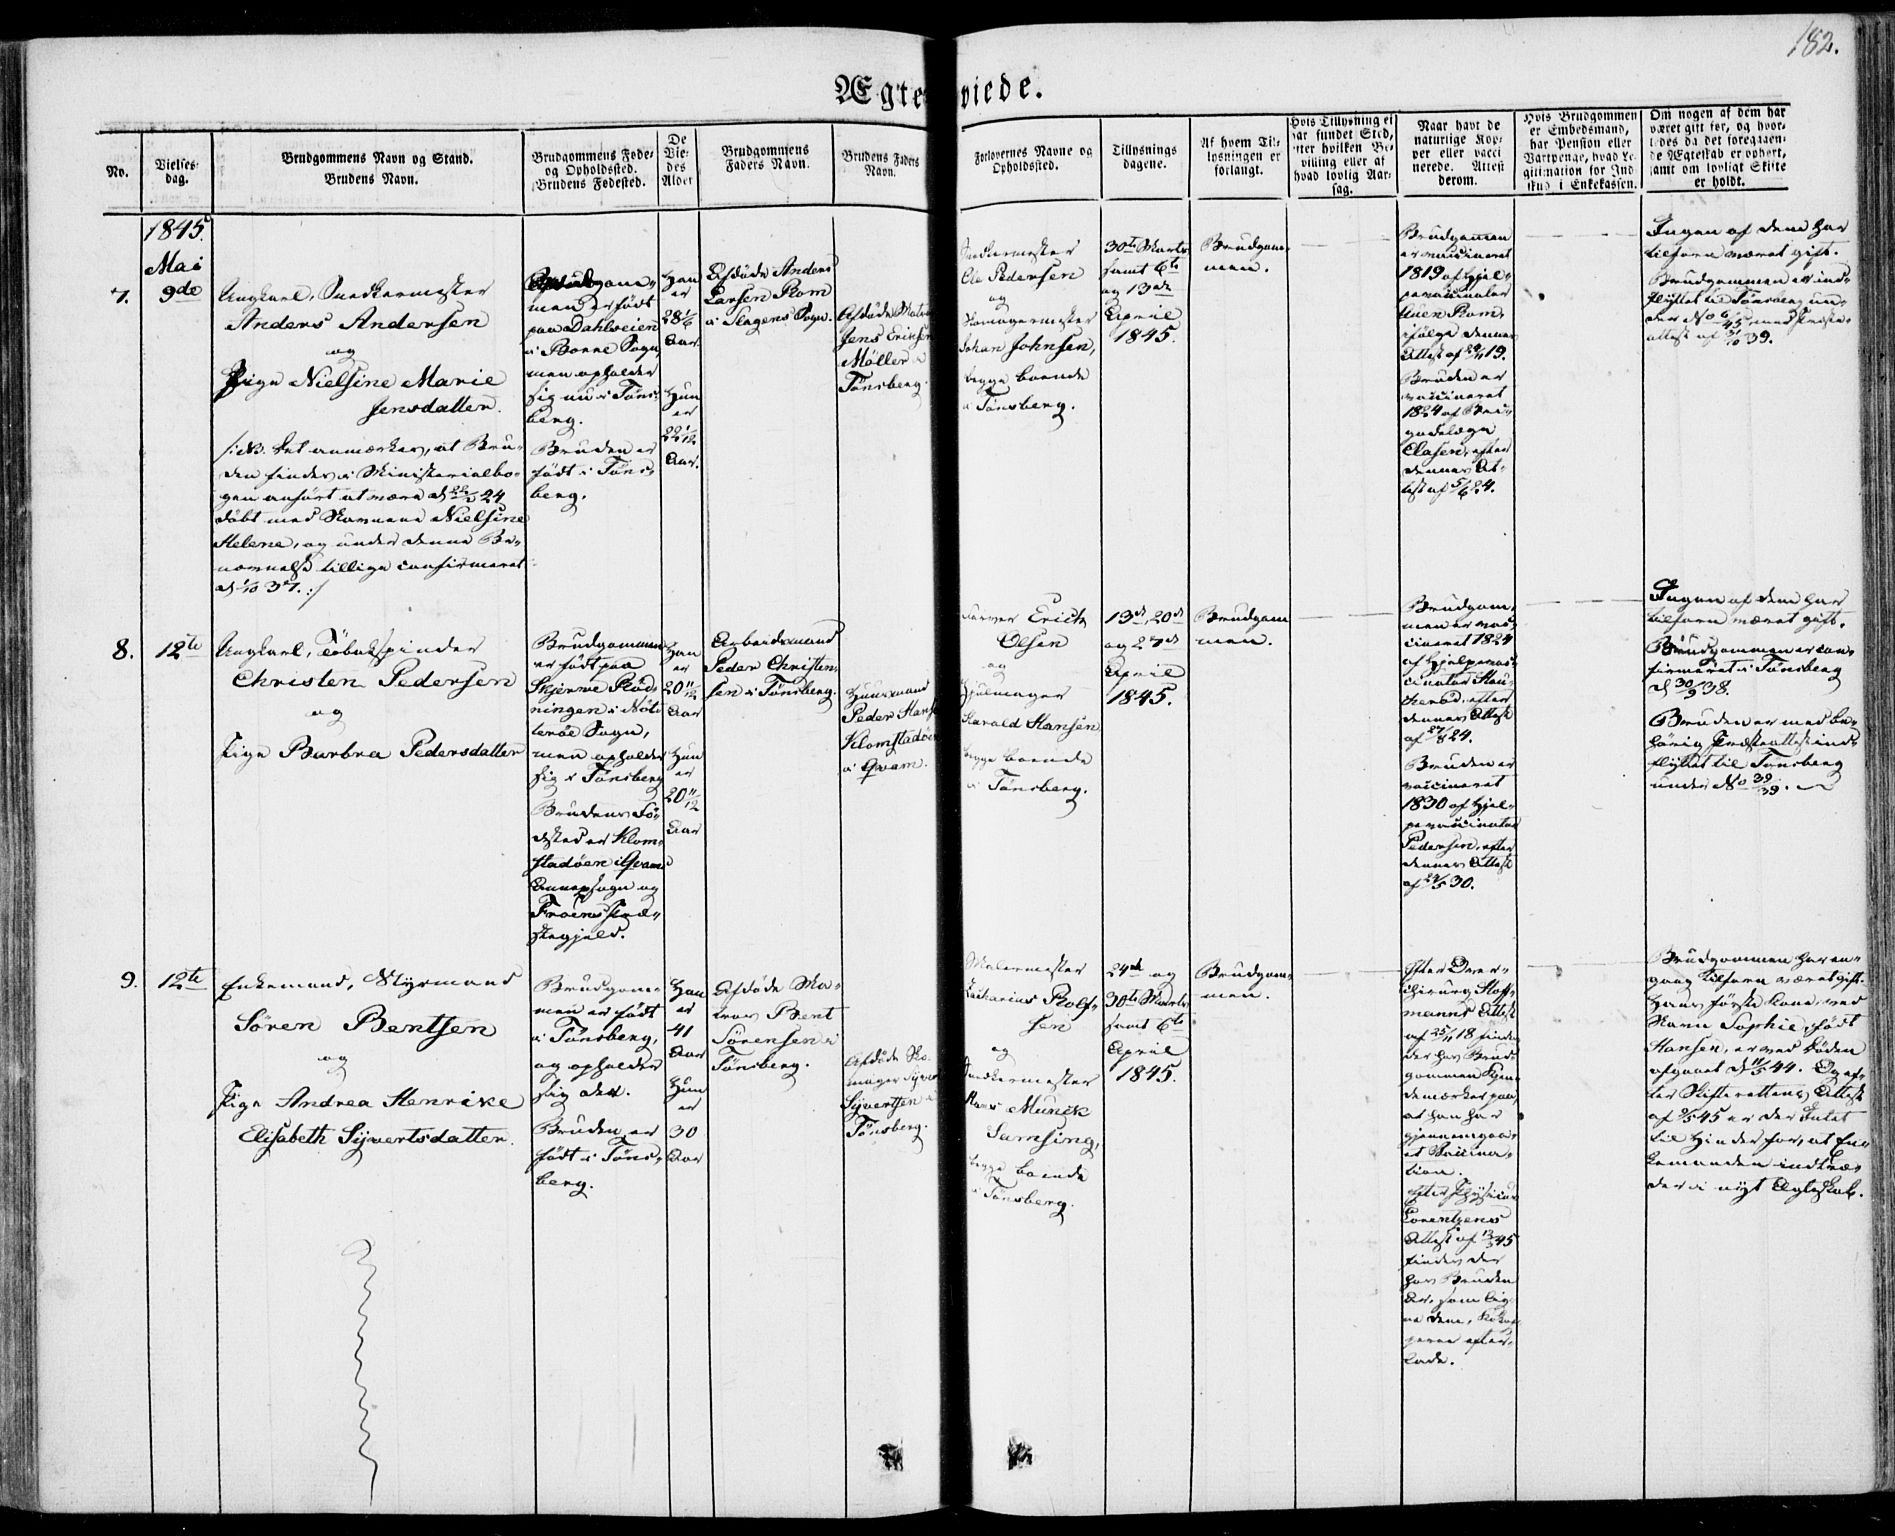 182.
Ægteviede.
No.
Vielses-
dag.
Brudgommens Navn og Stand.
Brudens Navn.
Brudgommens Føde-
og Opholdssted.
Brudens Fødested.
De
Vie-
des
Alder
Brudgommens
Faders Navn.
Brudens Faders
Navn.
Forlovernes Navne og
Opholdssted.
Tillysnings
dagene.
Af hvem Til-
lysningen er
forlangt.
Hvis Tillysning ei
har fundet Sted,
efter hvilken Be-
villing eller af
hvad lovlig Aar-
sag.
Naar havt de
naturlige Kop-
per eller vacci
nerede. Attest
derom.
Hvis Brudgommen
er Embedsmand,
har Pension eller
Vartpenge, hvad Le-
gitimation for Ind-
skud i Enkekassen.
Om nogen af dem har
været gift før, og hvor-
ledes da det foregaaen-
de Ægteskab er ophørt,
samt om lovligt Skifte
er holdt.
1845.
Mai
7.
9de
Ungkarl, Snedkermester
Anders Andersen
og
Pige Nielsine Marie
Jensdatter.
/: NB. Det anmærkes, at Bru-
den findes i Ministerialbo-
gen anført at være d. 22/2 24
døbt med Navnene Nielsine
Helene, og under denne Be-
nævnelse tillige confirmeret
d. 1/10 37. :/
Brudgom-
men er født
paa Dahlveien
i Borre Sogn,
men opholder
sig nu i Tøns-
berg.
Bruden er
født i Tøns-
berg.
Han
er
28 1/6
Aar.
Hun
er
22 1/12
Aar.
Afdøde Anders
Larsen Rom
i Slagens Sogn.
Afdøde
Jens Ericksen
Møller i
Tønsberg.
Snedkermester
Ole Pedersen
og
Skomagermester
Johan Johnsen,
begge boende
i Tønsberg.
30te Marts
samt 6te
og 13de
April
1845.
Brudgom-
men.
Brudgommen
er vaccineret
1819 af Hjel-
pevaccinateur
Huen Rom,
ifølge dennes
Attest af 19.
Bruden er
vaccineret
1824 af Bri-
gadelæge
Clasen, efter
dennes At-
test af 5/6 24.
Ingen af dem har
tilforn været gift.
Brudgommen er ind-
flyttet til Tønsberg un-
der No 6/45 med Præste-
attest af 39.
8.
12te
Ungkarl, Tobakspinder
Christen Pedersen
og
Pige Barbra Pedersdatter
Brudgommen
er født paa
Skjerve Rød-
ningen i Nøt-
terøe Sogn,
men opholder
sig i Tønsberg
Brudens Fø-
dested er Klom-
stadøen i Qvams
Annexsogn og
Froens Præ-
stegjeld.
Han
er
20 11/12
Aar
Hun
er
20 11/12
Aar
Arbeidsmand
Peder Christen-
sen i Tønsberg.
Huusmand
Peder Hansen
Klomstadøen
i Qvam.
Farver Erick
Olsen
og
Hjulmager
Harald Hansen
begge boende
i Tønsberg.
13de, 20de
og 27de
April
1845.
Brudgom
men.
Brudgom-
men er vac-
cineret 1824
af Hjelpevac-
cinator Hau-
kerød, efter
dennes Attest
af 27/8 24.
Bruden er
vaccineret
1830 af Hjel-
pevaccinator
Pedersen, efter
dennes Attest
af 24/5 30.
Ingen af dem har
tilforn været gift.
Brudgommen er con-
firmeret i Tønsberg
d. 30/9 38.
Bruden er med be-
hørig Præsteattest ind-
flyttet til Tønsberg
under No 39/39.
9.
12te
Enkemand, Styrmand
Søren Bentsen
og
Pige Andrea Henrike
Elisabeth Syvertsdatter.
Brudgom-
men er født
i Tønsberg,
og opholder
sig der.
Bruden er
født i Tøns-
berg.
Han
er
41
Aar
Hun
er
30
Aar
Afdøde Ma-
tros Bent
Sørensen i
Tønsberg.
Afdøde Sko-
mager Syvert
Syvertsen i
Tønsberg.
Malermester
Zacharias Rolf-
sen
og
Snedkermester
Hans Munik
Samsing,
begge boende
i Tønsberg.
24de og
30te Marts
samt 6te
April
1845.
Brudgom-
men.
Efter Over-
chirurg Hoff-
manns Attest
af 25/11 18 findes
der hos Brud-
gommen Kjen-
demærker paa,
at han har
gjennemgaa-
et Vaccina-
tion.
Efter Physicus
Lorentzens
Attest af 12/3 45
findes der
hos Bruden
Ar, som lig-
ne dem, Kokop-
perne efter-
lade.
Brudgommen har en-
gang tilforn været gift.
Hans første Kone, ved
Navn Sophie, født
Hansen, er ved Døden
afgaaet d. 11/5 44. Og ef-
ter Skifterettens Attest
af 2/5 45 er der Intet
til Hinder for, at En-
kemanden indtræ-
der i nyt Ægteskab.